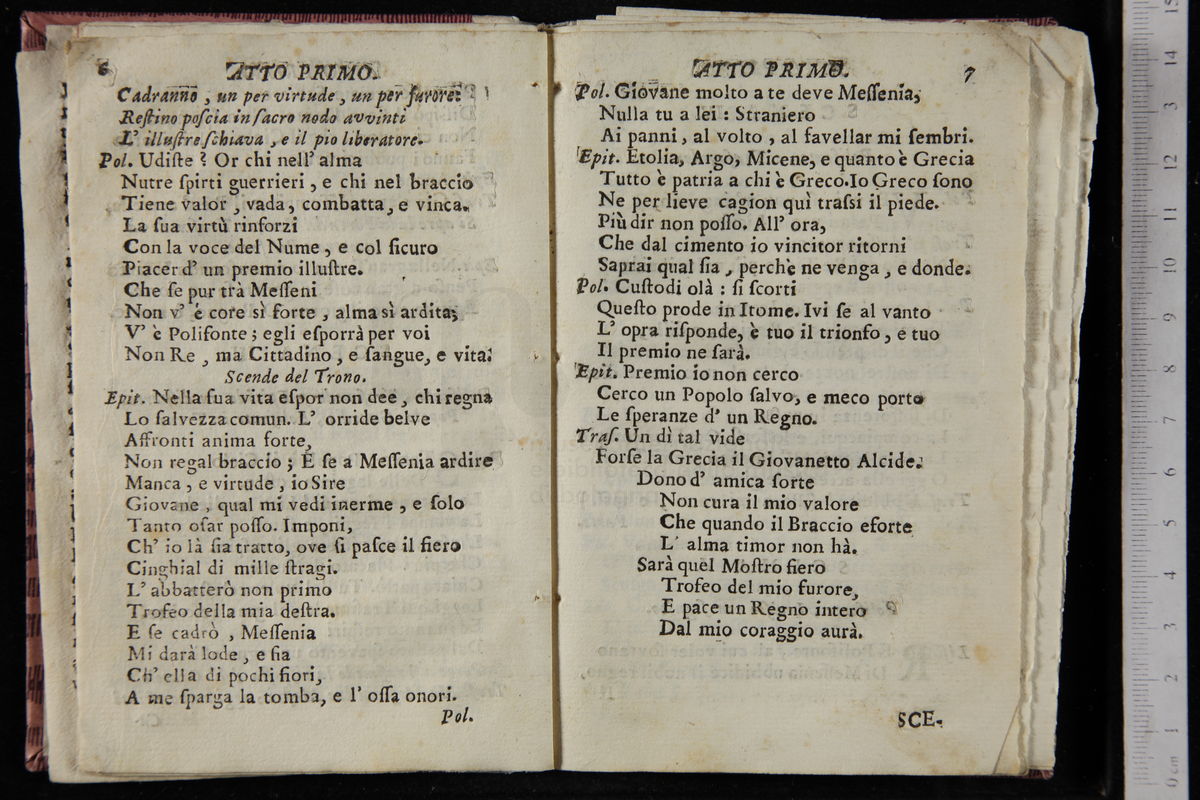 6
ATTO PRIMO.
Cadranno, un per virtude, un per furore:
Reſtino poſcia in ſacro nodo avvinti
L' illuſtre ſchiava, e il pio liberatore.
Pol. Udiſte? Or chi nell' alma
Nutre ſpirti guerrieri, e chi nel braccio
Tiene valor, vada, combatta, e vinca.
La ſua virtù rinforzi
Con la voce del Nume, e col ſicuro
Piacer d' un premio illuſtre.
Che ſe pur trà Meſſeni
Non v' è core sì forte, alma sì ardita;
V' è Polifonte; egli eſporrà per voi
Non Re, ma Cittadino, e ſangue, e vita.
Scende del Trono.
Epit. Nella ſua vita eſpor non dee, chi regna
Lo ſalvezza comun. L' orride belve
Affronti anima forte,
Non regal braccio; E ſe a Meſſenia ardire
Manca, e virtude, io Sire
Giovane, qual mi vedi inerme, e ſolo
Tanto oſar poſſo. Imponi,
Ch' io là ſia tratto, ove ſi paſce il fiero
Cinghial di mille ſtragi.
L' abbatterò non primo
Trofeo della mia deſtra.
E ſe cadrò, Meſſenia
Mi darà lode, e ſia
Ch' ella di pochi fiori,
A me ſparga la tomba, e l' oſſa onori.
Pol.
ATTO PRIMO.
7
Pol. Giovane molto a te deve Meſſenia,
Nulla tu a lei: Straniero
Ai panni, al volto, al favellar mi ſembri.
Epit. Etolia, Argo, Micene, e quanto è Grecia
Tutto è patria a chi è Greco. Io Greco ſono
Ne per lieve cagion quì traſſi il piede.
Più dir non poſſo. All' ora,
Che dal cimento io vincitor ritorni
Saprai qual ſia, perchè ne venga, e donde.
Pol. Cuſtodi olà: ſi ſcorti
Queſto prode in Itome. Ivi ſe al vanto
L' opra riſponde, è tuo il trionfo, e tuo
Il premio ne ſarà.
Epit. Premio io non cerco
Cerco un Popolo ſalvo, e meco porto
Le ſperanze d' un Regno.
Traſ. Un dì tal vide
Forſe la Grecia il Giovanetto Alcide.
Dono d' amica ſorte
Non cura il mio valore
Che quando il Braccio eforte
L' alma timor non hà.
Sarà quel Moſtro fiero
Trofeo del mio furore,
E pace un Regno intero
Dal mio coraggio aurà.
SCE.